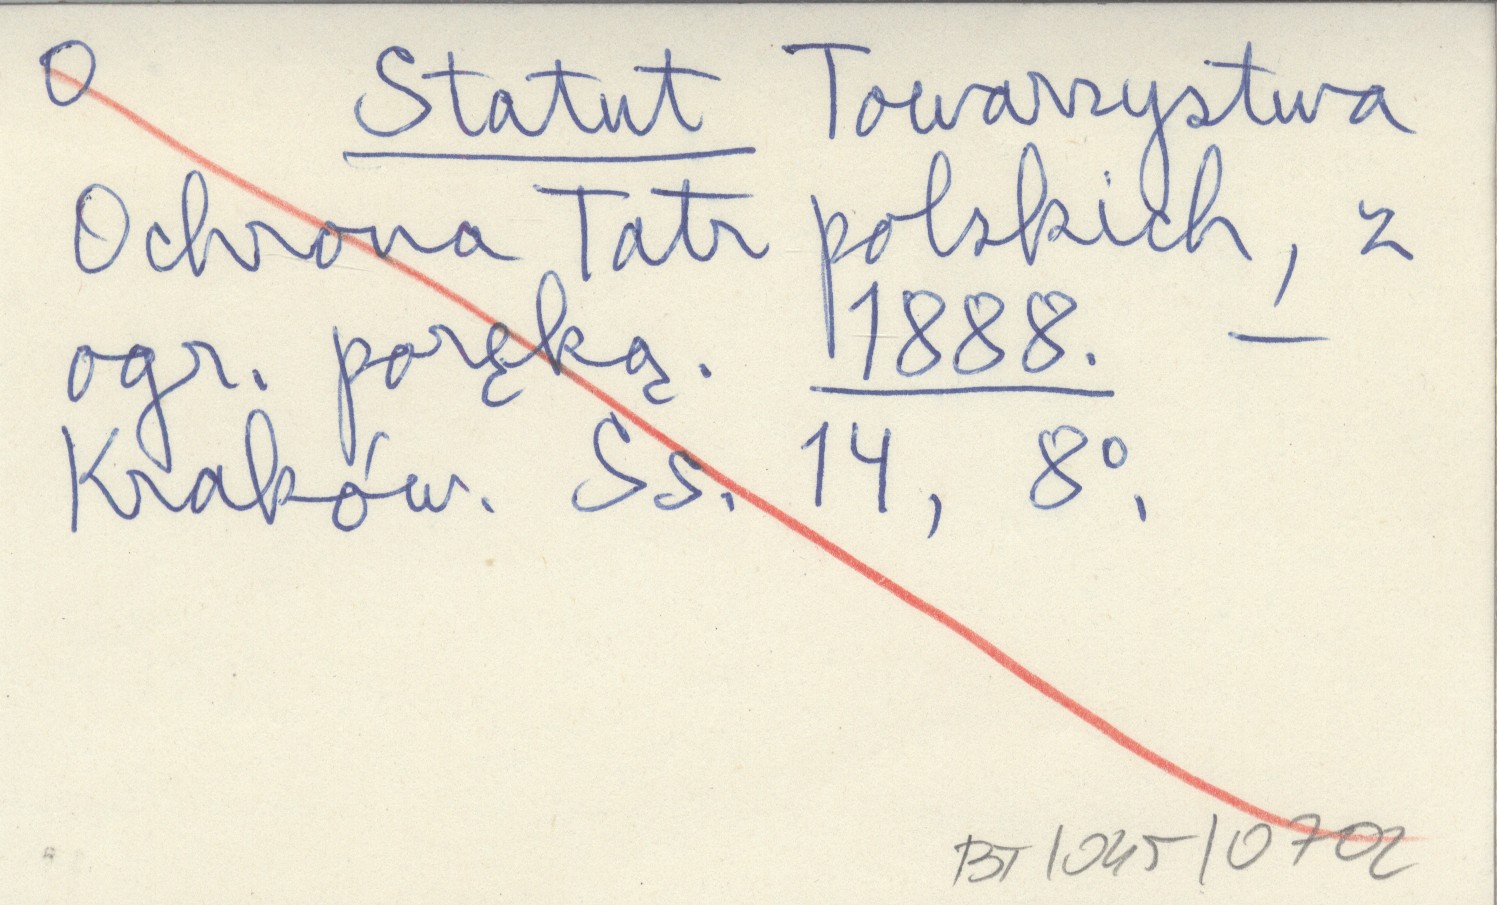 O Statut Towarzystwa
Ochrona Tatr polskich, z
ogr. poręką. 1888. —
Kraków. Ss. 14, 8°,
BT/045/0702